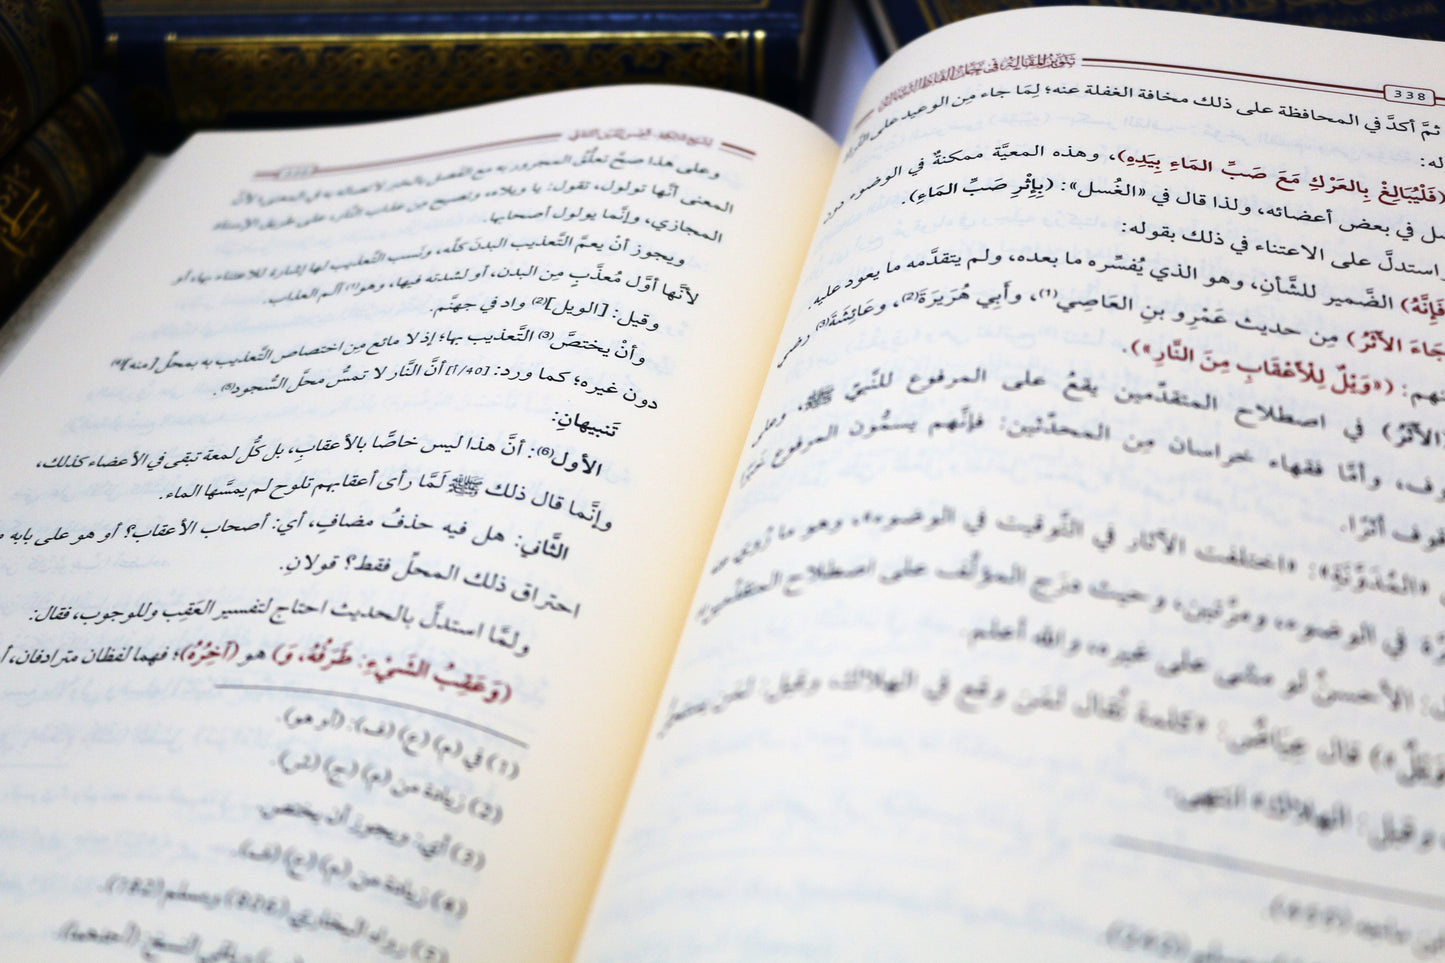 تنوير المقالة في حل ألفاظ الرسالة
338
ثمَّ أكدَّ في المحافظة على ذلك مخافة الغفلة عنه؛ لِمَا جاء مِن الوعيد على
له:
(فَلْيُبَالِغْ بِالعَرْكِ مَعَ صَبِّ المَاءِ بِيَدِهِ)، وهذه المعيَّة ممكنةٌ في الوضوء دون
في بعض أعضائه، ولذا قال في «الغُسل»: (بِإِثْرِ صَبِّ المَاءِ).
استدلَّ على الاعتناء في ذلك بقوله:
فَإِنَّهُ) الضَّمير للشَّأنِ، وهو الذي يُفسِّره ما بعده، ولم يتقدَّمه ما يعود عليه.
جَاءَ الأَثَرُ) مِن حديث عَمْرِو بنِ العَاصِي(1)، وأبِي هُرَيرَةَ(2)، وعَائِشَةَ(3)
(«وَيْلٌ لِلْأَعْقَابِ مِنَ النَّارِ»).
(الأَثَرُ) في اصطلاح المتقدِّمين يقعُ على المرفوع للنَّبيِّ ﷺ، وعلى
وأمَّا فقهاء خراسان مِن المحدِّثين: فإنَّهم يسمُّون المرفوع خبرًا
أثرًا.
«المُدَوَّنَةِ»: «اختلفت الآثار في التَّوقيت في الوضوء»، وهو ما رُوي
في الوضوء، ومرَّتين، وحيث مزَج المؤلِّف على اصطلاح المتقدِّمين
الأحسنُ لو مشى على غيره، والله أعلم.
قال عِيَاضٌ: «كلمة تُقال لمَن وقع في الهلاك، وقيل: لمَن يستحقُّ
وقيل: الهلاك» انتهى.
وعلى هذا صحَّ تعلُّق المجرور به مع الفصل بالخبر
المعنى أنَّها تولول، تقول: يا ويلاه، وتصيح من عذاب النَّار، على طريق الإسناد
المجازي، وإنَّما يولول أصحابها.
ويجوز أنْ يعمَّ التَّعذيب البدنَ كلَّه، ونَسب التَّعذيب لها إشارة للاعتناء بها، أو
لأنَّها أوَّل مُعذَّبٍ مِن البدن، أو لشدته فيها، وهو(1) آلم العذاب.
وقيل: [الويل](2) واد في جهنَّم.
وأنْ يختصَّ(3) التَّعذيب بها؛ إذ لا مانع مِن اختصاص التَّعذيب به بمحلِّ [منه](4)
دون غيره؛ كما ورد: [1/40] أنَّ النَّار لا تمسُّ محلَّ السُّجود(5).
تَنبيهانِ:
الأول(6): أنَّ هذا ليس خاصًّا بالأعقابِ، بل كلُّ لمعة تبقى في الأعضاء كذلك،
وإنَّما قال ذلك ﷺ لَمَّا رأى أعقابهم تلوح لم يمسَّها الماء.
الثَّاني: هل فيه حذفُ مضافٍ، أي: أصحاب الأعقاب؟ أو هو على بابه
احتراق ذلك المحلّ فقط؟ قولانِ.
ولمَّا استدلَّ بالحديث احتاج لتفسير العَقِب وللوجوب، فقال:
(وَعَقِبُ الشَّيْءِ: طَرَفُهُ، وَ) هو (آخِرُهُ)؛ فهما لفظان مترادفان،
(1) في (م) (ع) (ف): (أو هو).
(2) زيادة من (م) (ج)
(3) أي: ويجوز أن يختص.
(4) زيادة من (م) (ع) (ف).
(5) رواه البخاري (806) ومسلم (182).